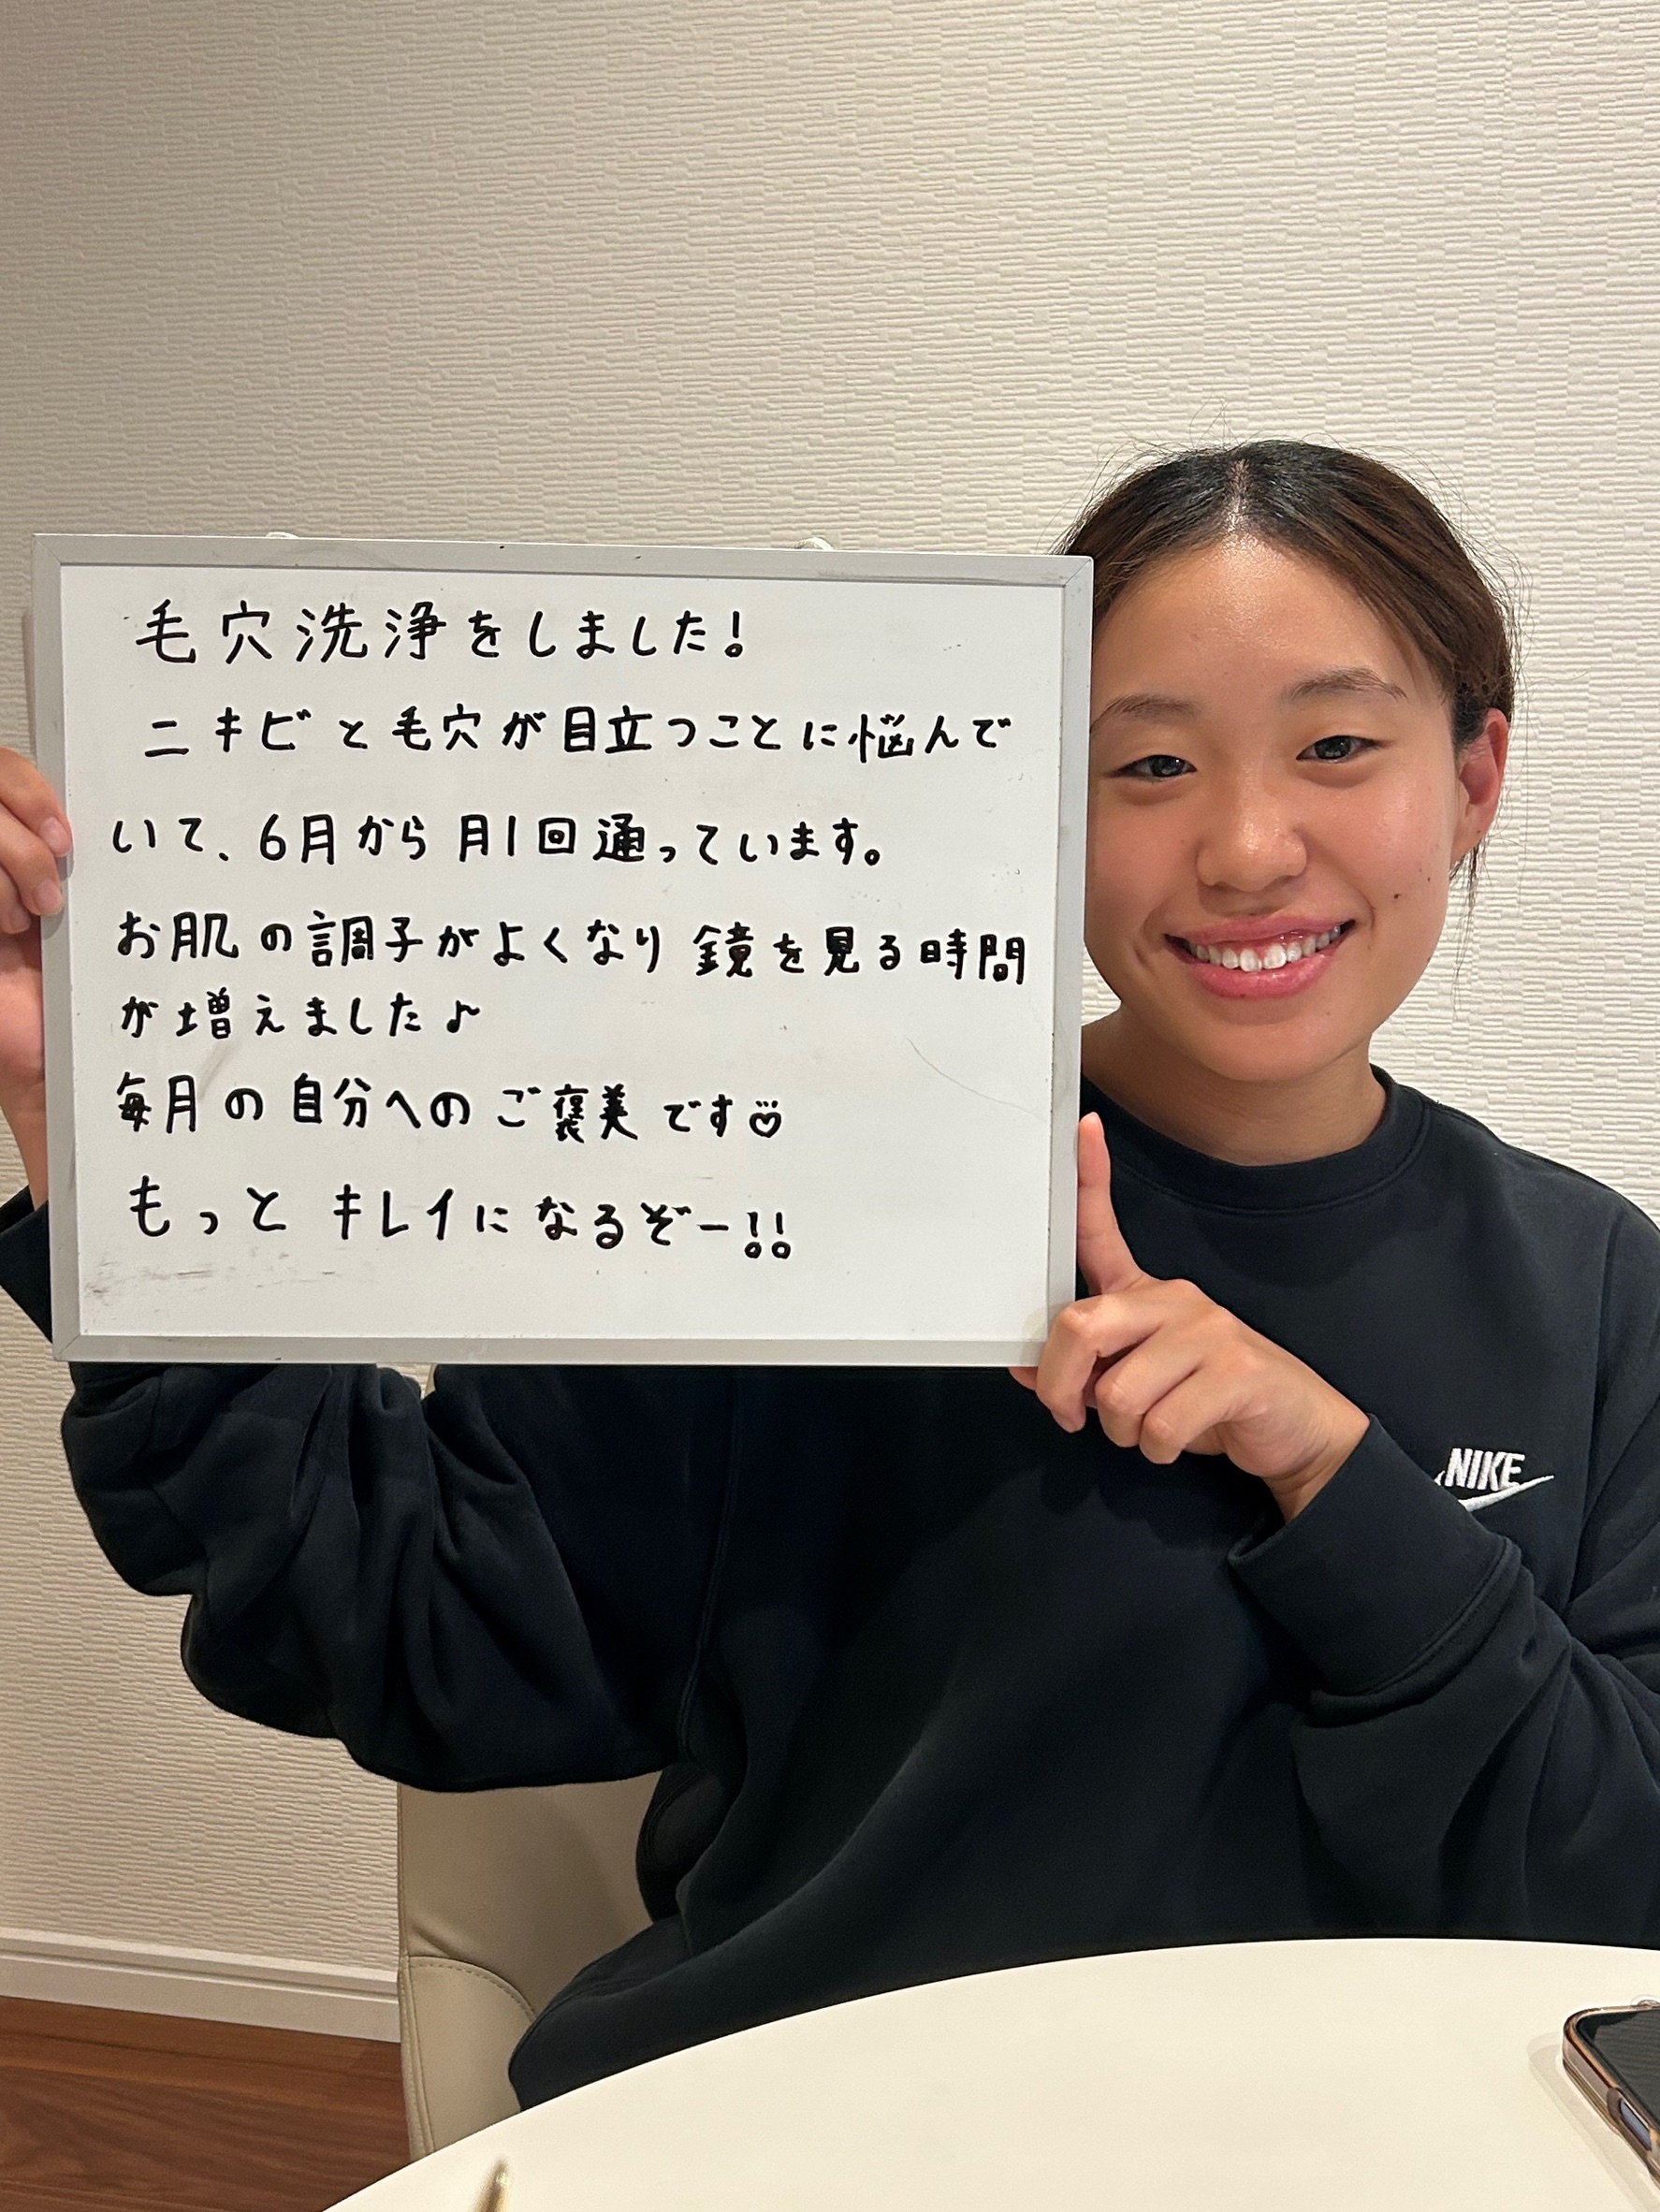 毛穴洗浄をしました!
ニキビと毛穴が目立つことに悩んで
いて、6月から月1回通っています。
お肌の調子がよくなり 鏡を見る時間
が増えました♪
毎月の自分へのご褒美です♡
もっと キレイになるぞー!!
NIKE